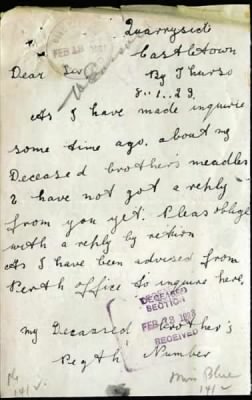 Quarryside
Castletown
By Thurso
8.1.23.
Dear Sir
As I have made inquirie
some time ago. about my
Deceased brother's meadles
I have not got a reply
from you yet. Pleas oblige
with a reply by return
As I have been advised from
Perth Office to inquire here,
my Deceased brother's
Regth Number
DECEASED
SECTION
FEB 13
RECEIVED
Miss Blue